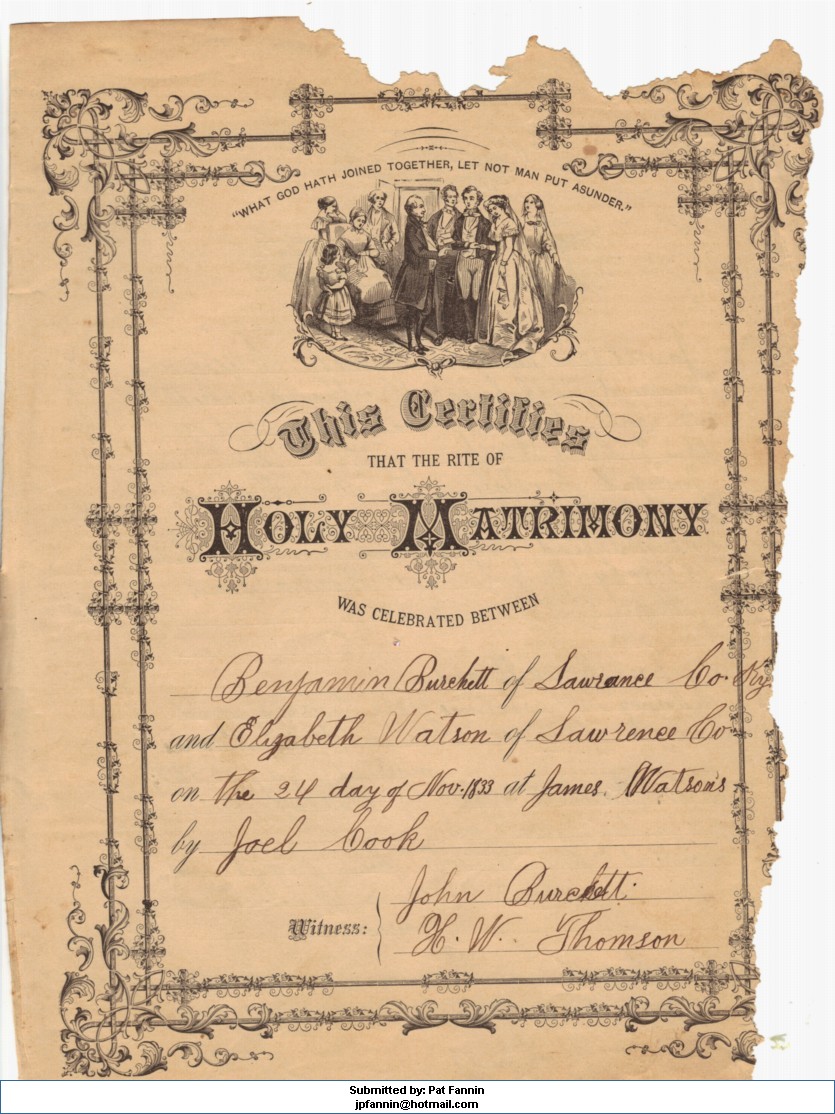 "WHAT GOD HATH JOINED TOGETHER, LET NOT MAN PUT ASUNDER."
This Certifies
THAT THE RITE OF
HOLY MATRIMONY
WAS CELEBRATED BETWEEN
Benjamin Burchett of Lawrance Co. Ky
and Elizabeth Watson of Lawrence Co
on the 24 day of Nov. 1833 at James Watson's
by Joel Cook
John Burchett
Witness:
H. W. Thomson
Submitted by: Pat Fannin
jpfannin@hotmail.com